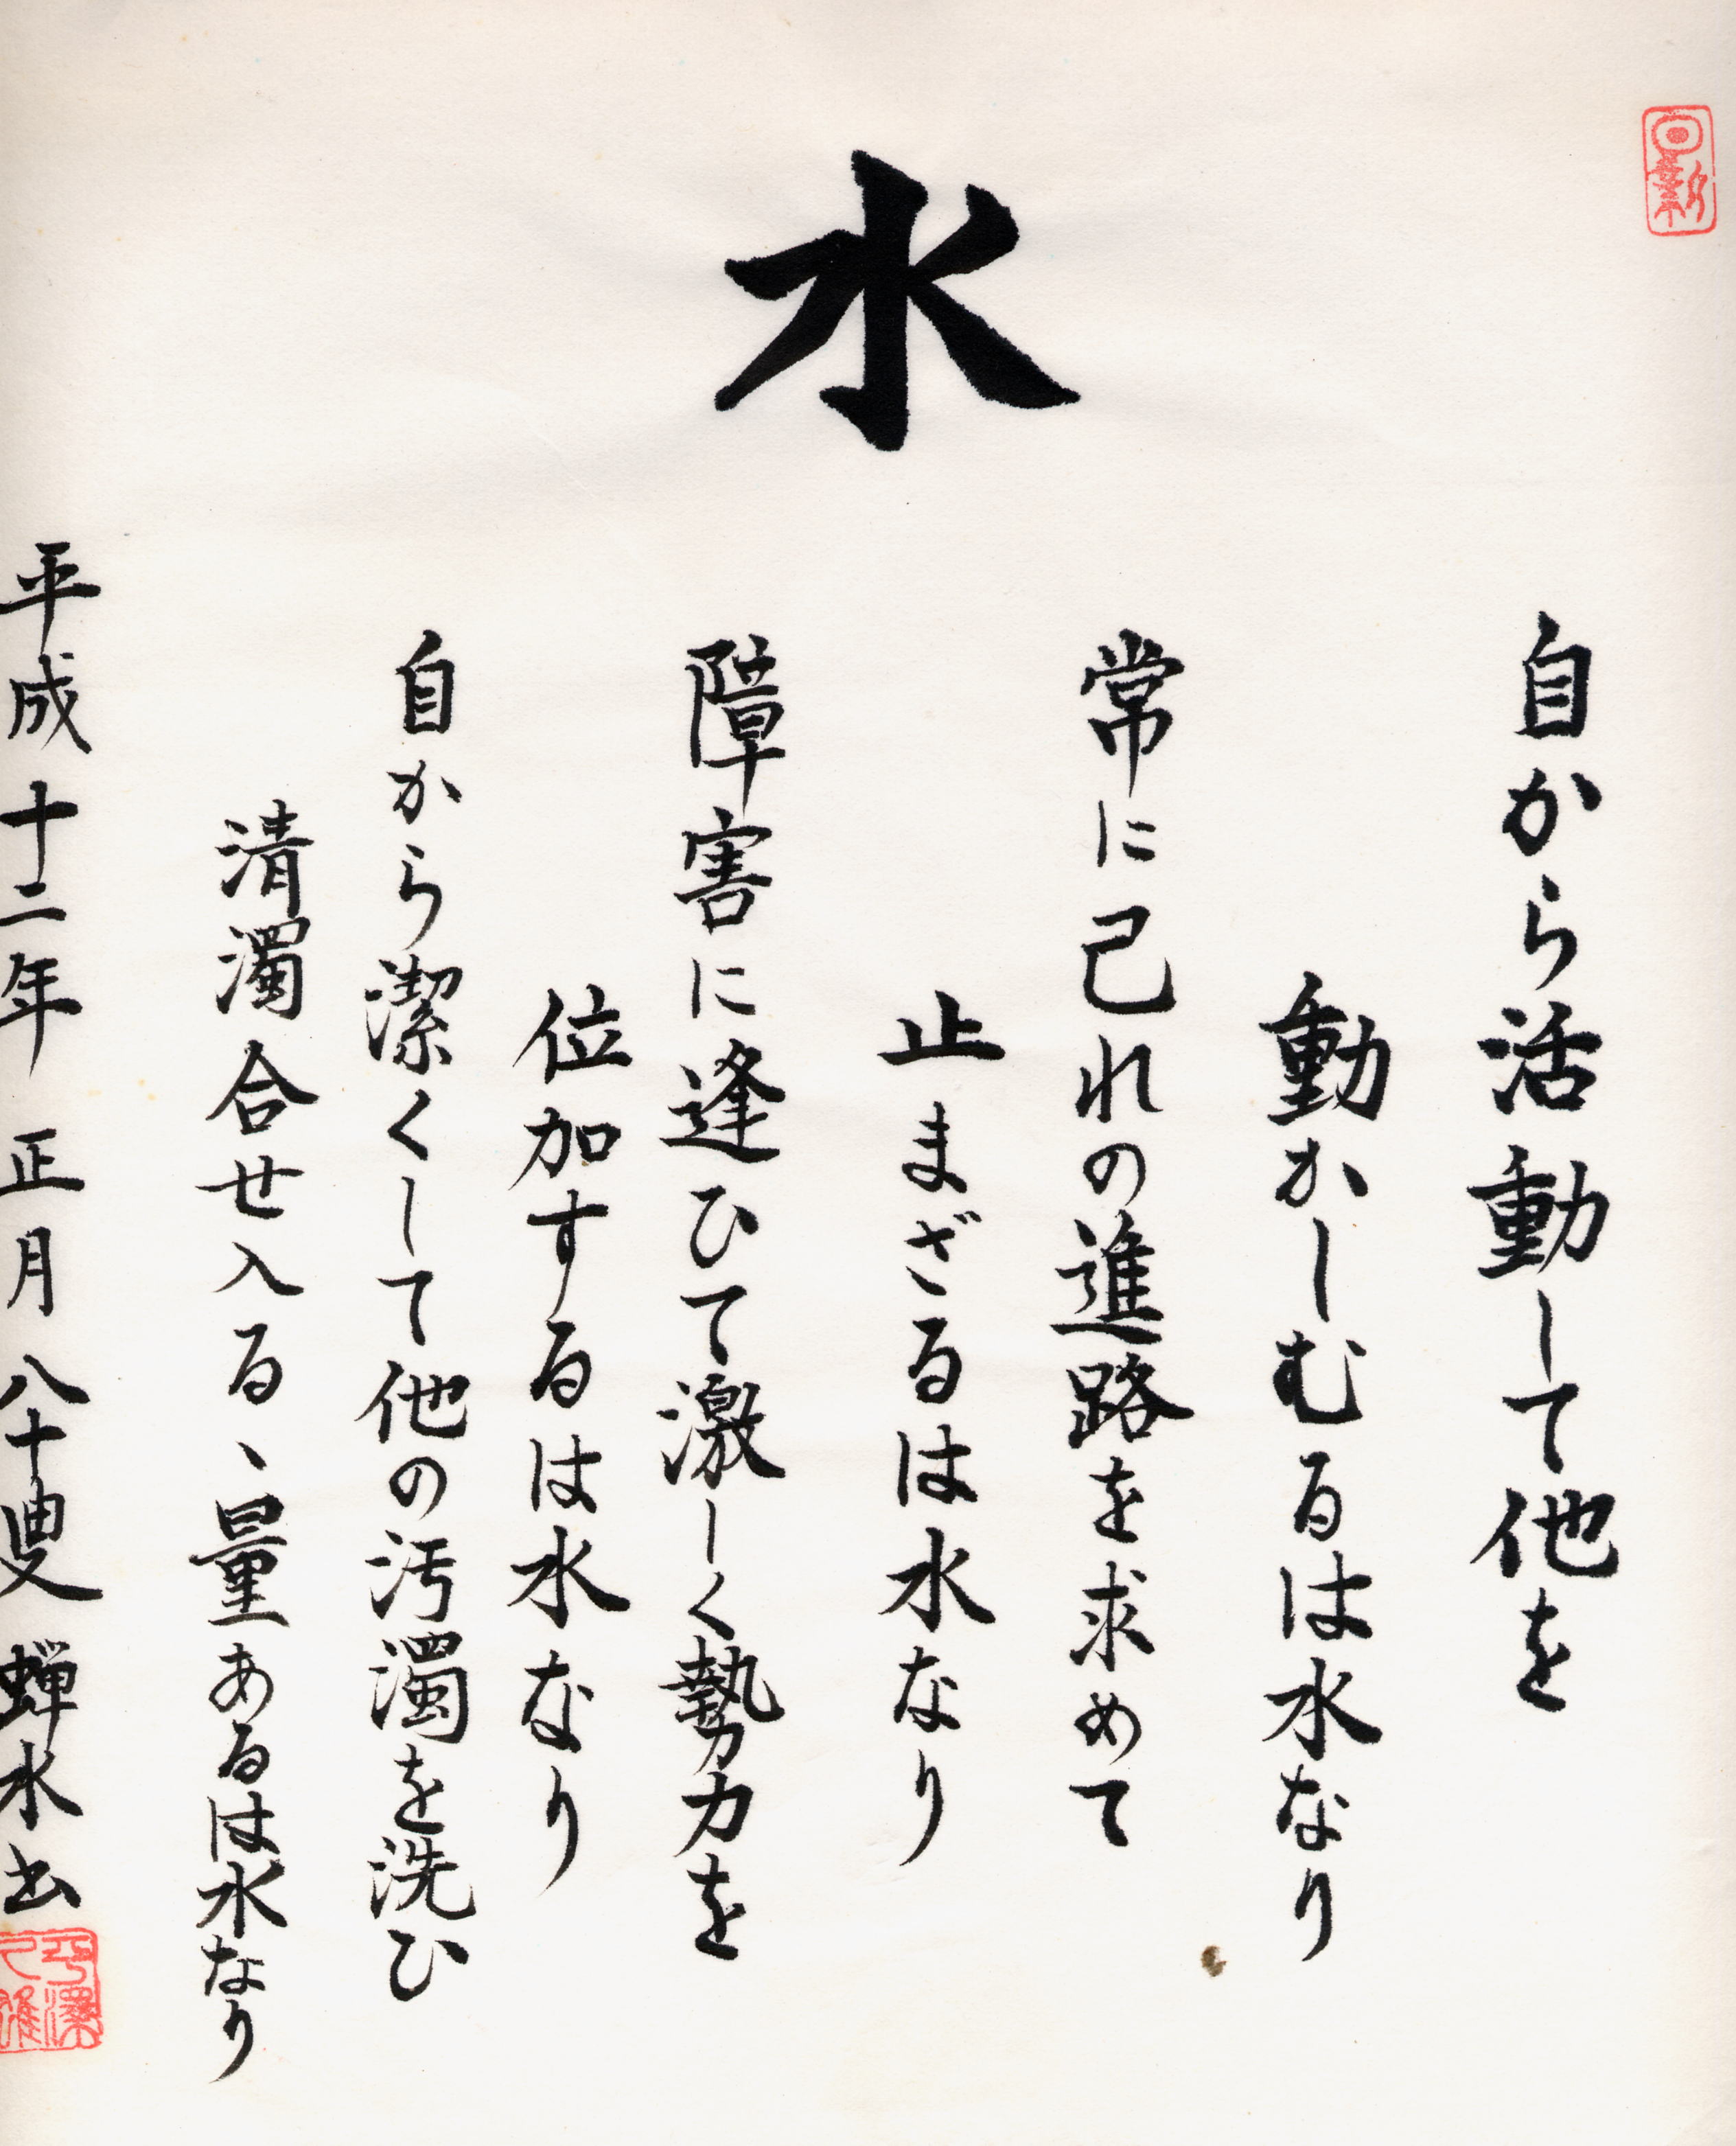 水
自から活動して他を
動かしむるは水なり
常に己れの進路を求めて
止まざるは水なり
障害に逢ひて激しく勢力を
位加するは水なり
自から潔くして他の汚濁を洗ひ
清濁合せ入るゝ量あるは水なり
平成十二年 正月 八十叟 蝉水书
日新